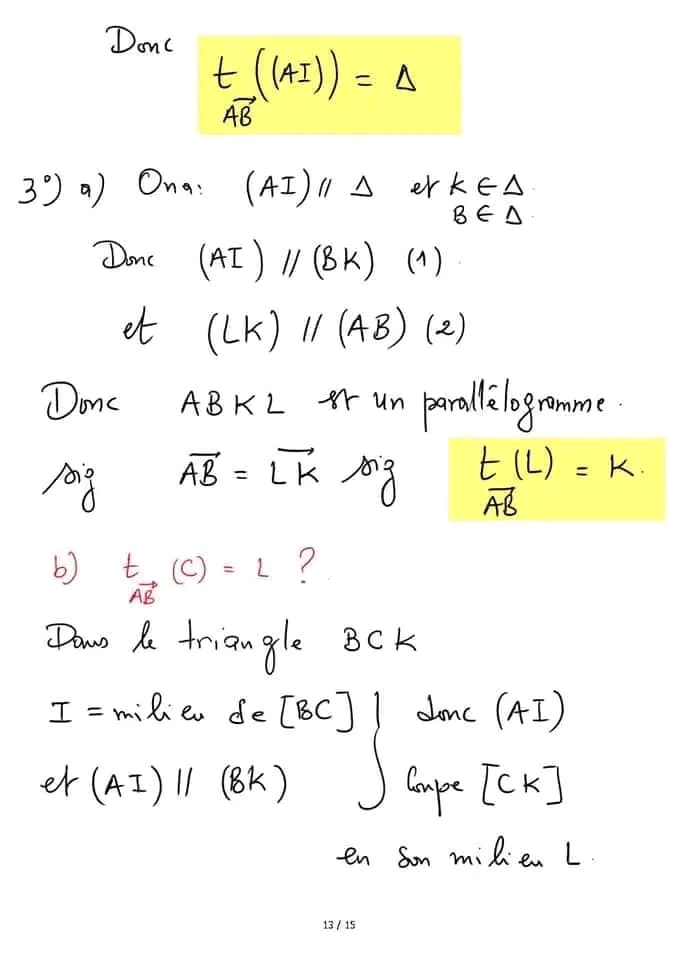 Donc t_{\overrightarrow{AB}}((AI)) = Δ
3°) a) Ona: (AI) // Δ et K ∈ Δ
B ∈ Δ
Donc (AI) // (BK) (1)
et (LK) // (AB) (2)
Donc ABKL est un parallélogramme.
sig \overrightarrow{AB} = \overrightarrow{LK} sig t_{\overrightarrow{AB}}(L) = K.
b) t_{\overrightarrow{AB}}(C) = L ?
Dans le triangle BCK
I = milieu de [BC] } donc (AI)
et (AI) // (BK) } Coupe [CK]
en son milieu L.
13 / 15